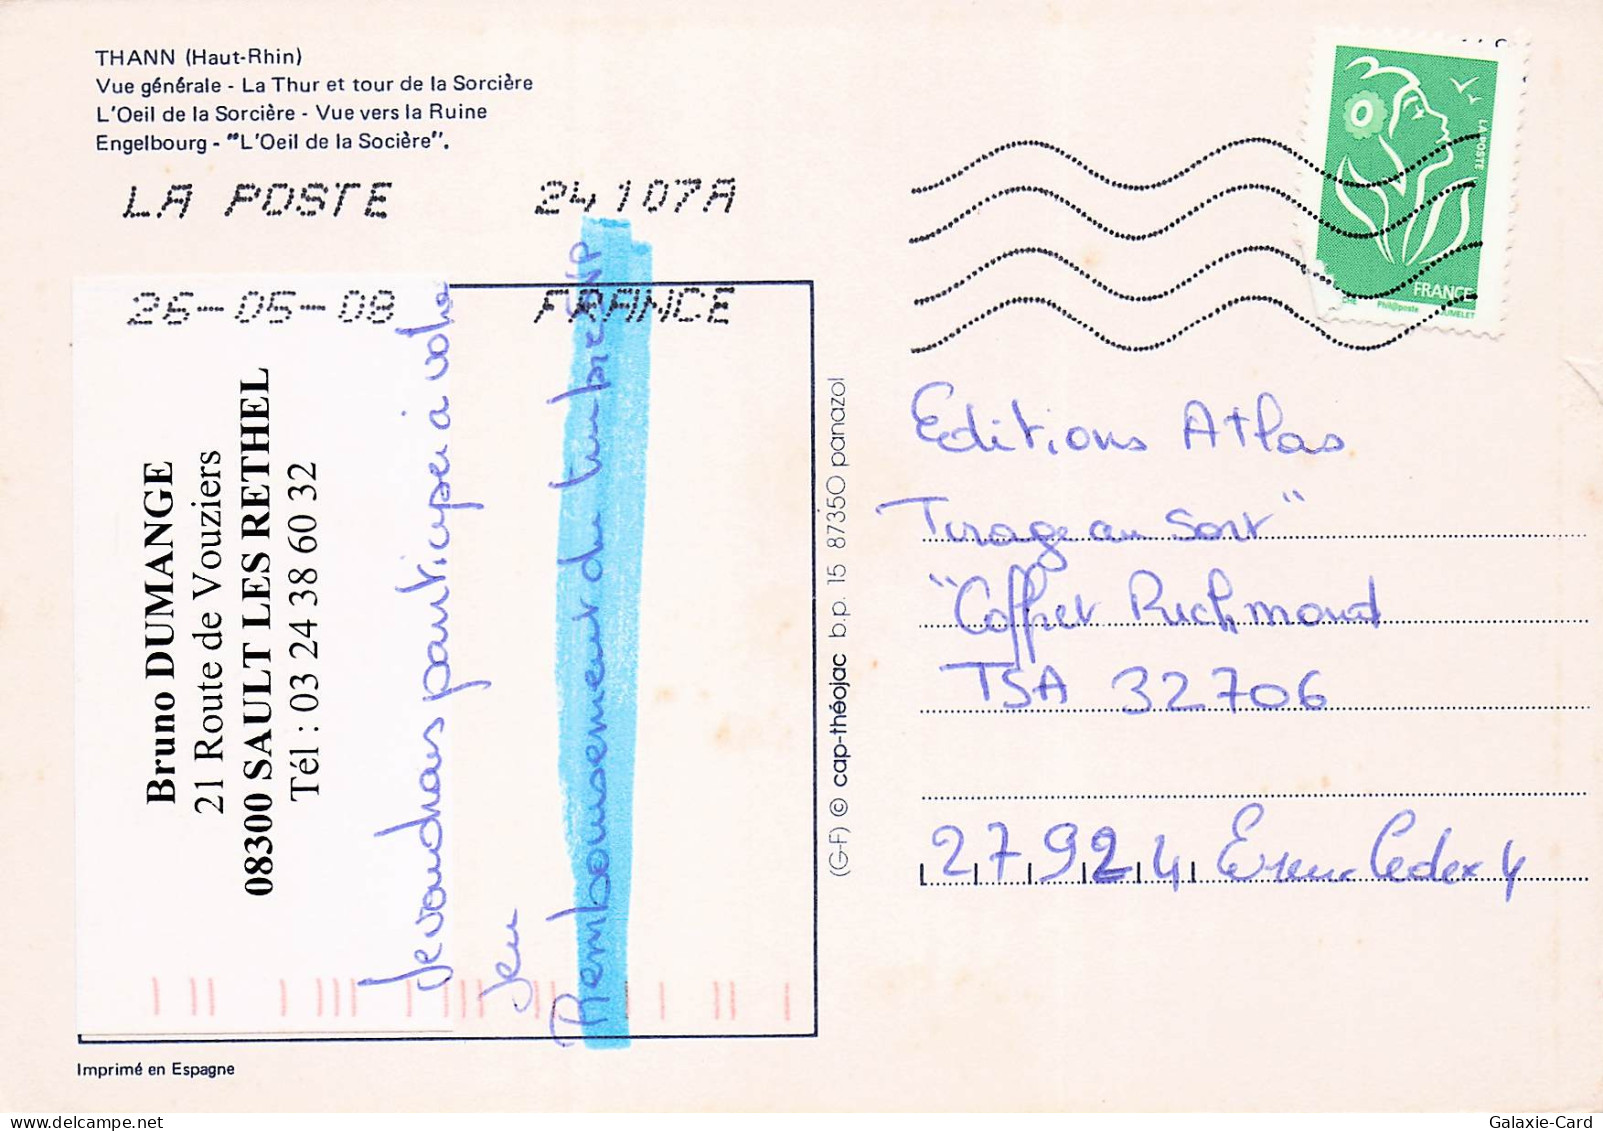 THANN (Haut-Rhin)
Vue générale - La Thur et tour de la Sorcière
L'Oeil de la Sorcière - Vue vers la Ruine
Engelbourg - "L'Oeil de la Socière".
LA POSTE 24107A
26-05-08 FRANCE
Bruno DUMANGE
21 Route de Vouziers
08300 SAULT LES RETHEL
Tél : 03 24 38 60 32
Je voudrais participer à votre
jeu
Remboursement du timbre SVP
(G-F) © cap-théojac b.p. 15 87350 panazol
LA POSTE
FRANCE
Philaposte
Editions Atlas
Tirage au Sort"
"Coffret Richmond
TSA 32706
27924 Evreux Cedex 4
Imprimé en Espagne
Galaxie-Card